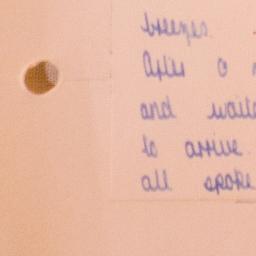 breezes.
After a
and waite
to arrive.
all spoke